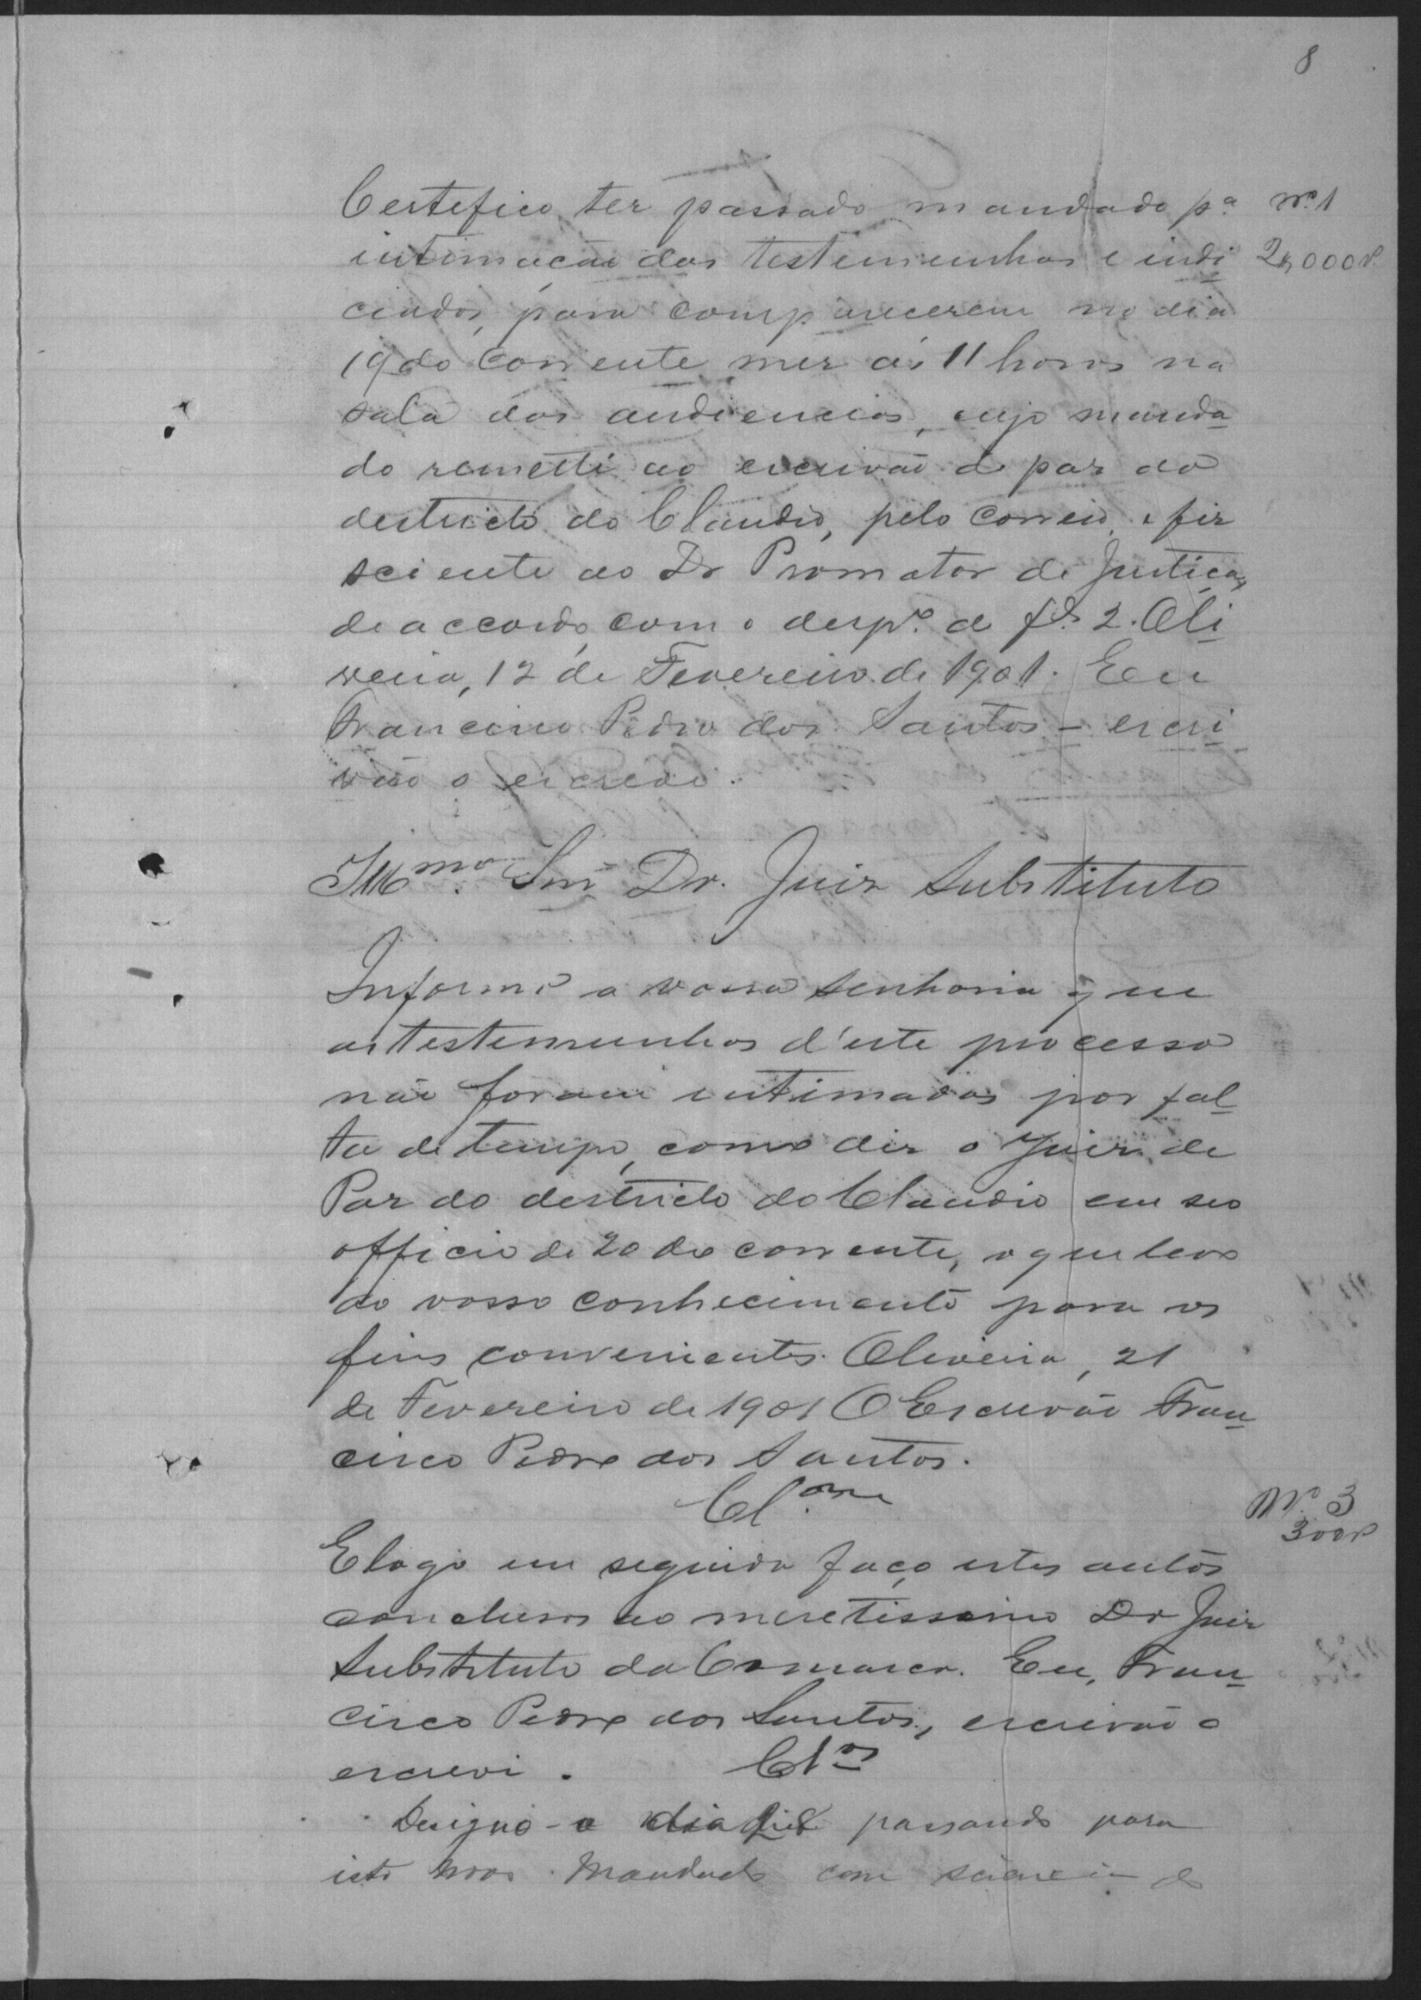 8
Certefico ter passado mandado pª
Nº 1
intimação das testemunhas e indi
2$000
ciados, para comparecerem no dia
19 do corrente mez ás 11 horas na
sala das audiencias, cujo manda
do remetti ao escrivão de paz do
destricto do Claudio, pelo correio, e fiz
sciente ao Dr Promotor de Justiça,
de accordo com o despº de fls 2. Oli
veira, 12 de Fevereiro de 1901. Eu
Francisco Pedro dos Santos – escri
vão o escrevi.
Illmo. Snr Dr. Juiz Substituto
Informo a vossa senhoria que
as testemunhas d'este processo
não foram intimadas por fal
ta de tempo, como diz o Juiz de
Paz do destricto do Claudio em seo
officio de 20 do corrente, o que levo
ao vosso conhecimento para os
fins convenientes. Oliveira, 21
de Fevereiro de 1901 O Escrivão Fran
cisco Pedro dos Santos.
Cl.am
Nº 3
300
E logo em seguida faço estes autos
conclusos ao meretissimo Dr Juiz
Substituto da Comarca. Eu, Fran
cisco Pedro dos Santos, escrivão o
escrevi. Clos
Designo o dia passando para
isto novo Mandado com sciencia do